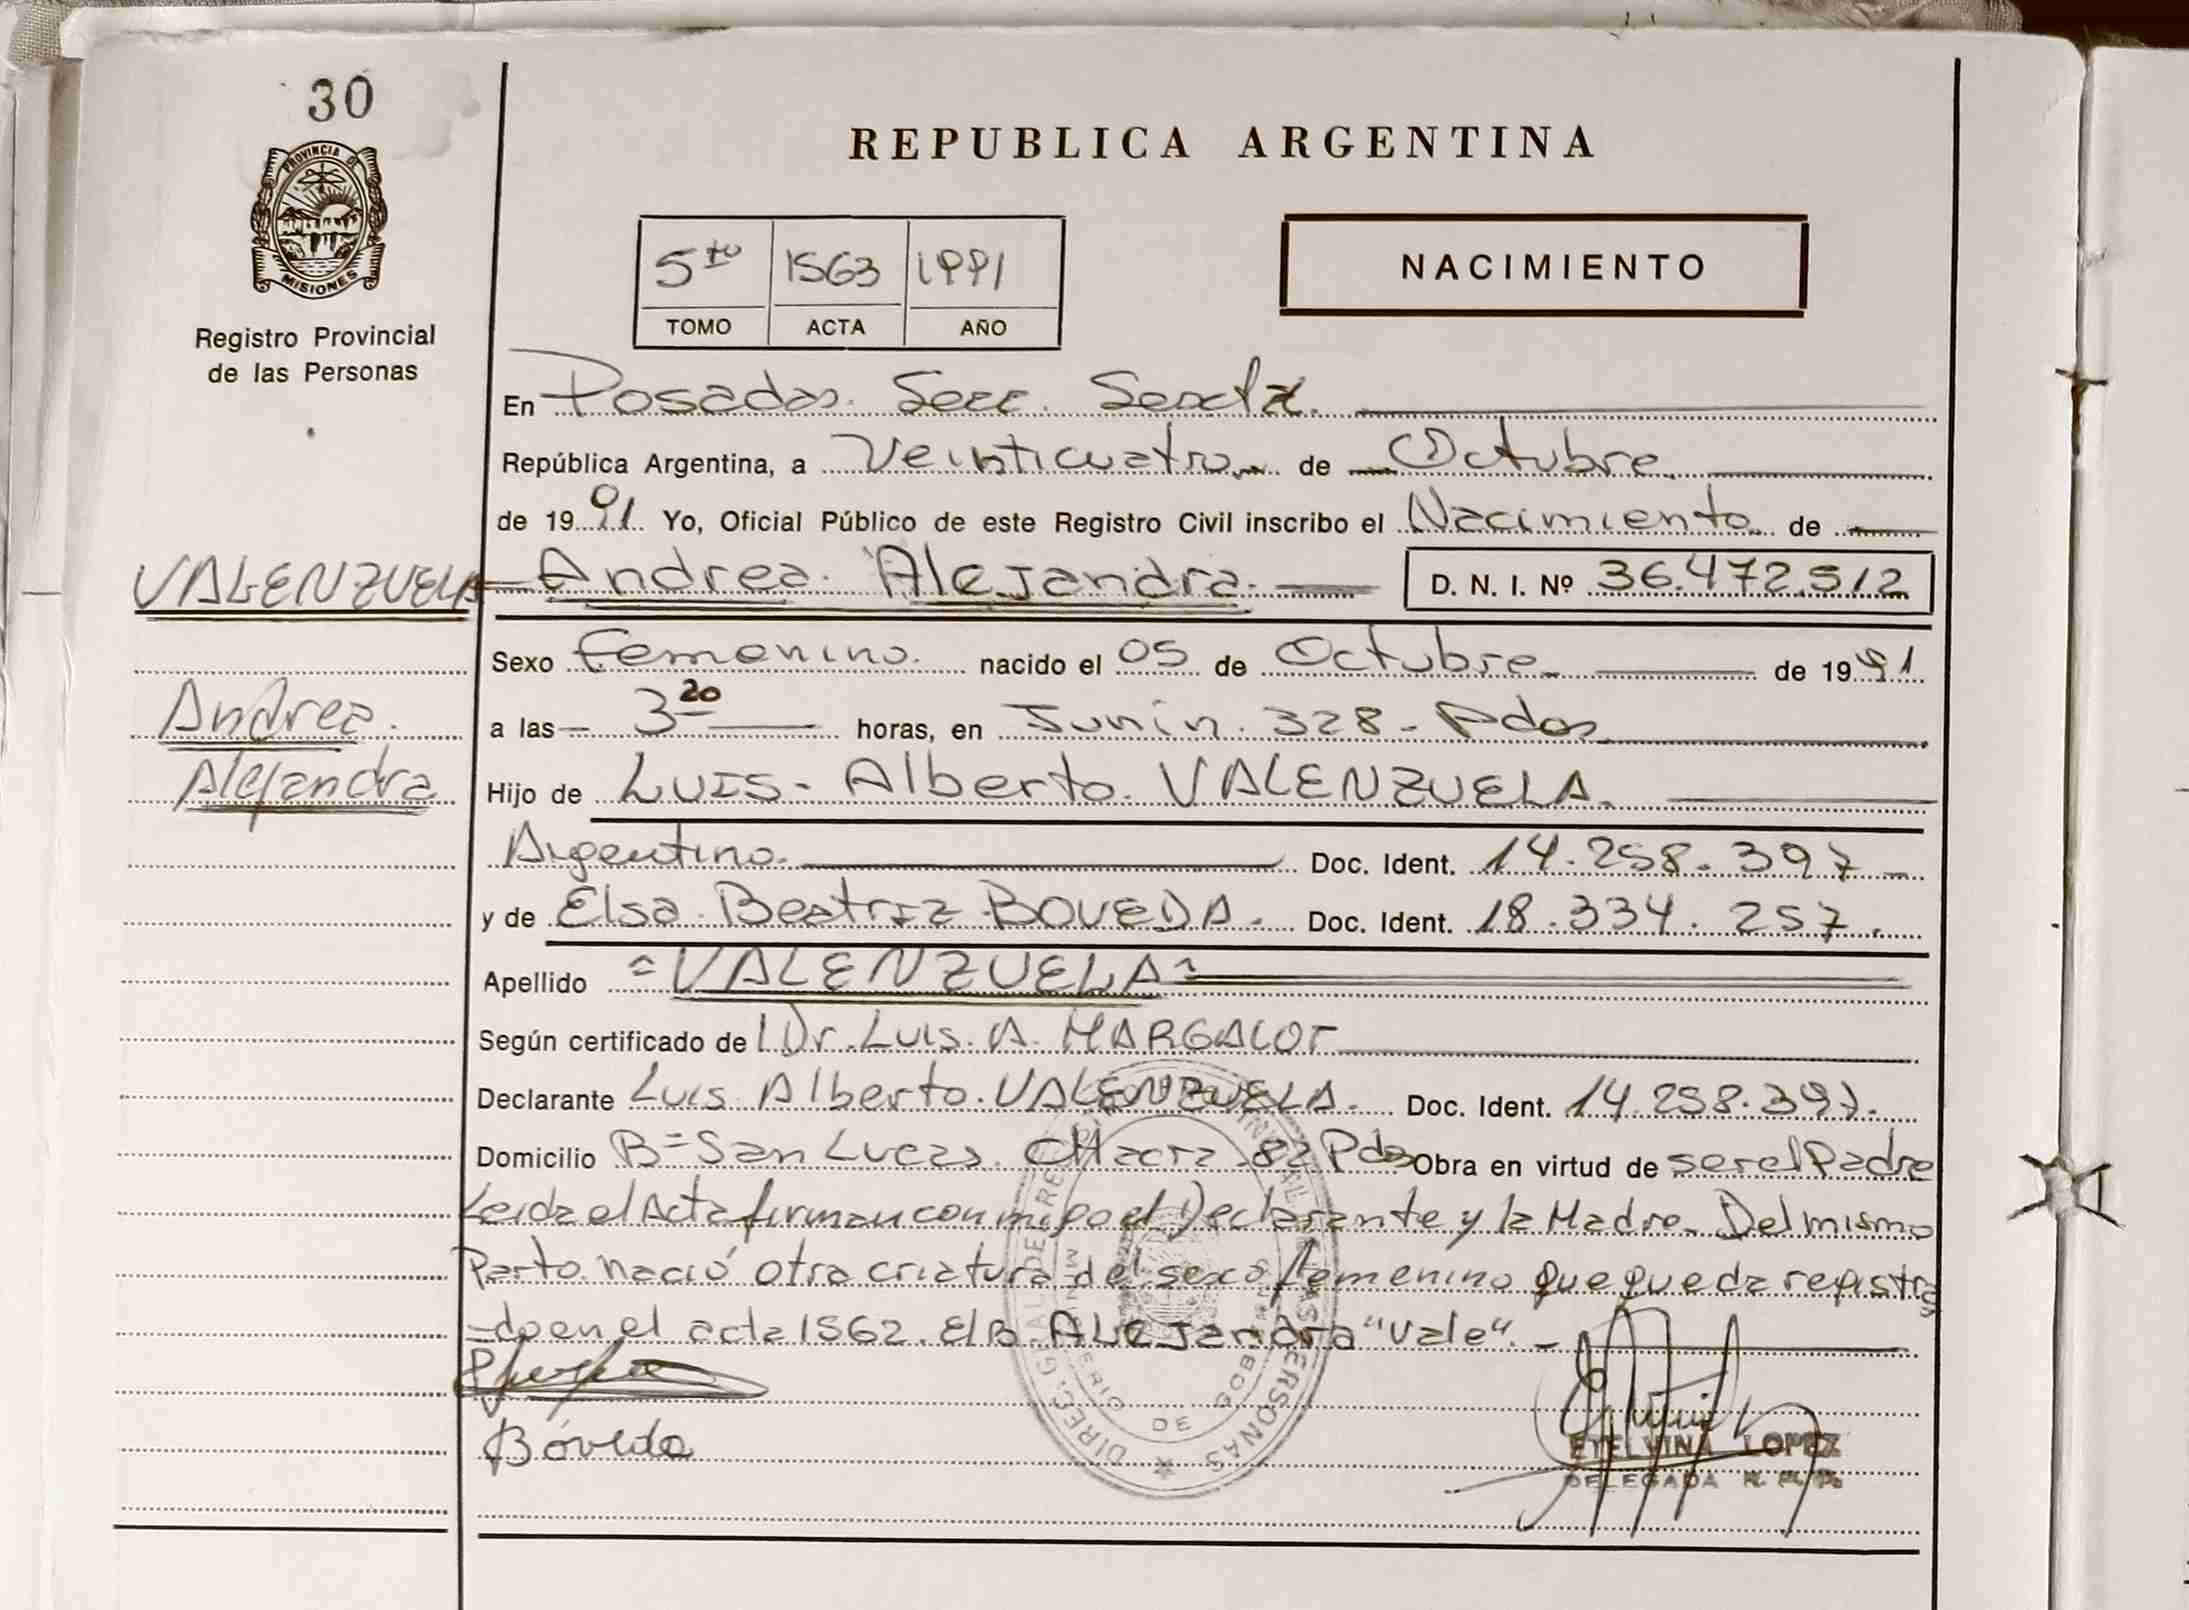 30
PROVINCIA DE
MISIONES
Registro Provincial
de las Personas
REPUBLICA ARGENTINA
5to 1563 1991
TOMO ACTA AÑO
NACIMIENTO
En Posadas. Secc. Sexta.
República Argentina, a Veinticuatro de Octubre
de 1991 Yo, Oficial Público de este Registro Civil inscribo el Nacimiento de
VALENZUELA Andrea Alejandra D. N. I. Nº 36.472.512
Sexo Femenino. nacido el 05 de Octubre de 1991
Andrea.
a las 3 20 horas, en Junin. 328 - Pdas
Alejandra
Hijo de LUIS - Alberto. VALENZUELA.
Argentino. Doc. Ident. 14.258.397
y de Elsa Beatriz BOVEDA. Doc. Ident. 18.334.257.
Apellido =VALENZUELA=
Según certificado de Dr. Luis. A. MARGALOT
Declarante Luis Alberto. VALENZUELA. Doc. Ident. 14.258.397.
Domicilio B= San Lucas. CHacra 82 Pdas Obra en virtud de ser el Padre
Leida el Acta firman conmigo el Declarante y la Madre. Del mismo
Parto nació otra criatura del sexo femenino que queda registra
=do en el acta 1562. E/B. ALEJandra "Vale".
Bóveda
ETELVINA LOPEZ
DELEGADA R. P. P.